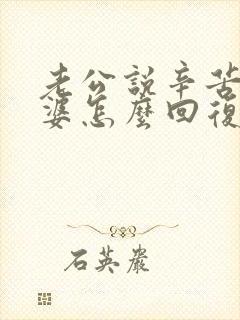 老公說辛苦
婆怎麼回復
石英嚴